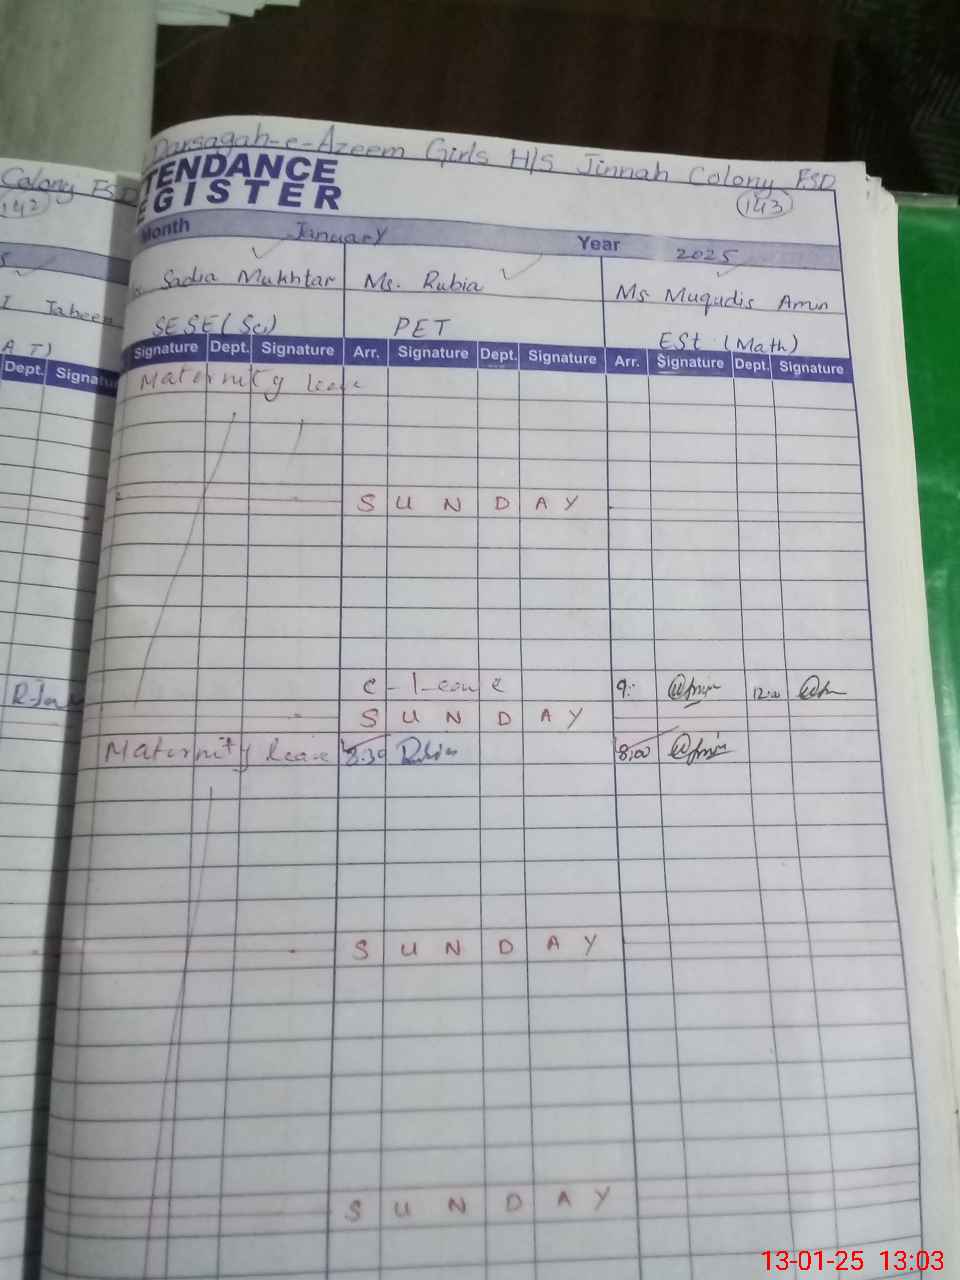 Darsagah-e-Azeem Girls H/S Jinnah Colony FSD
Colony FSD
TENDANCE
EGISTER
142
143
Month January Year 2025
Sadia Mukhtar Ms. Rubia Ms Muqudis Amin
Taheen
SESE (Sc) PET ESt (Math)
A T)
Dept. Signatu
Signature Dept. Signature Arr. Signature Dept. Signature Arr. Signature Dept. Signature
Maternity leave
S U N D A Y
C-leave 9: 12:00
S U N D A Y
Maternity leave 8:30 Rubia 8:00
S U N D A Y
S U N D A Y
13-01-25 13:03